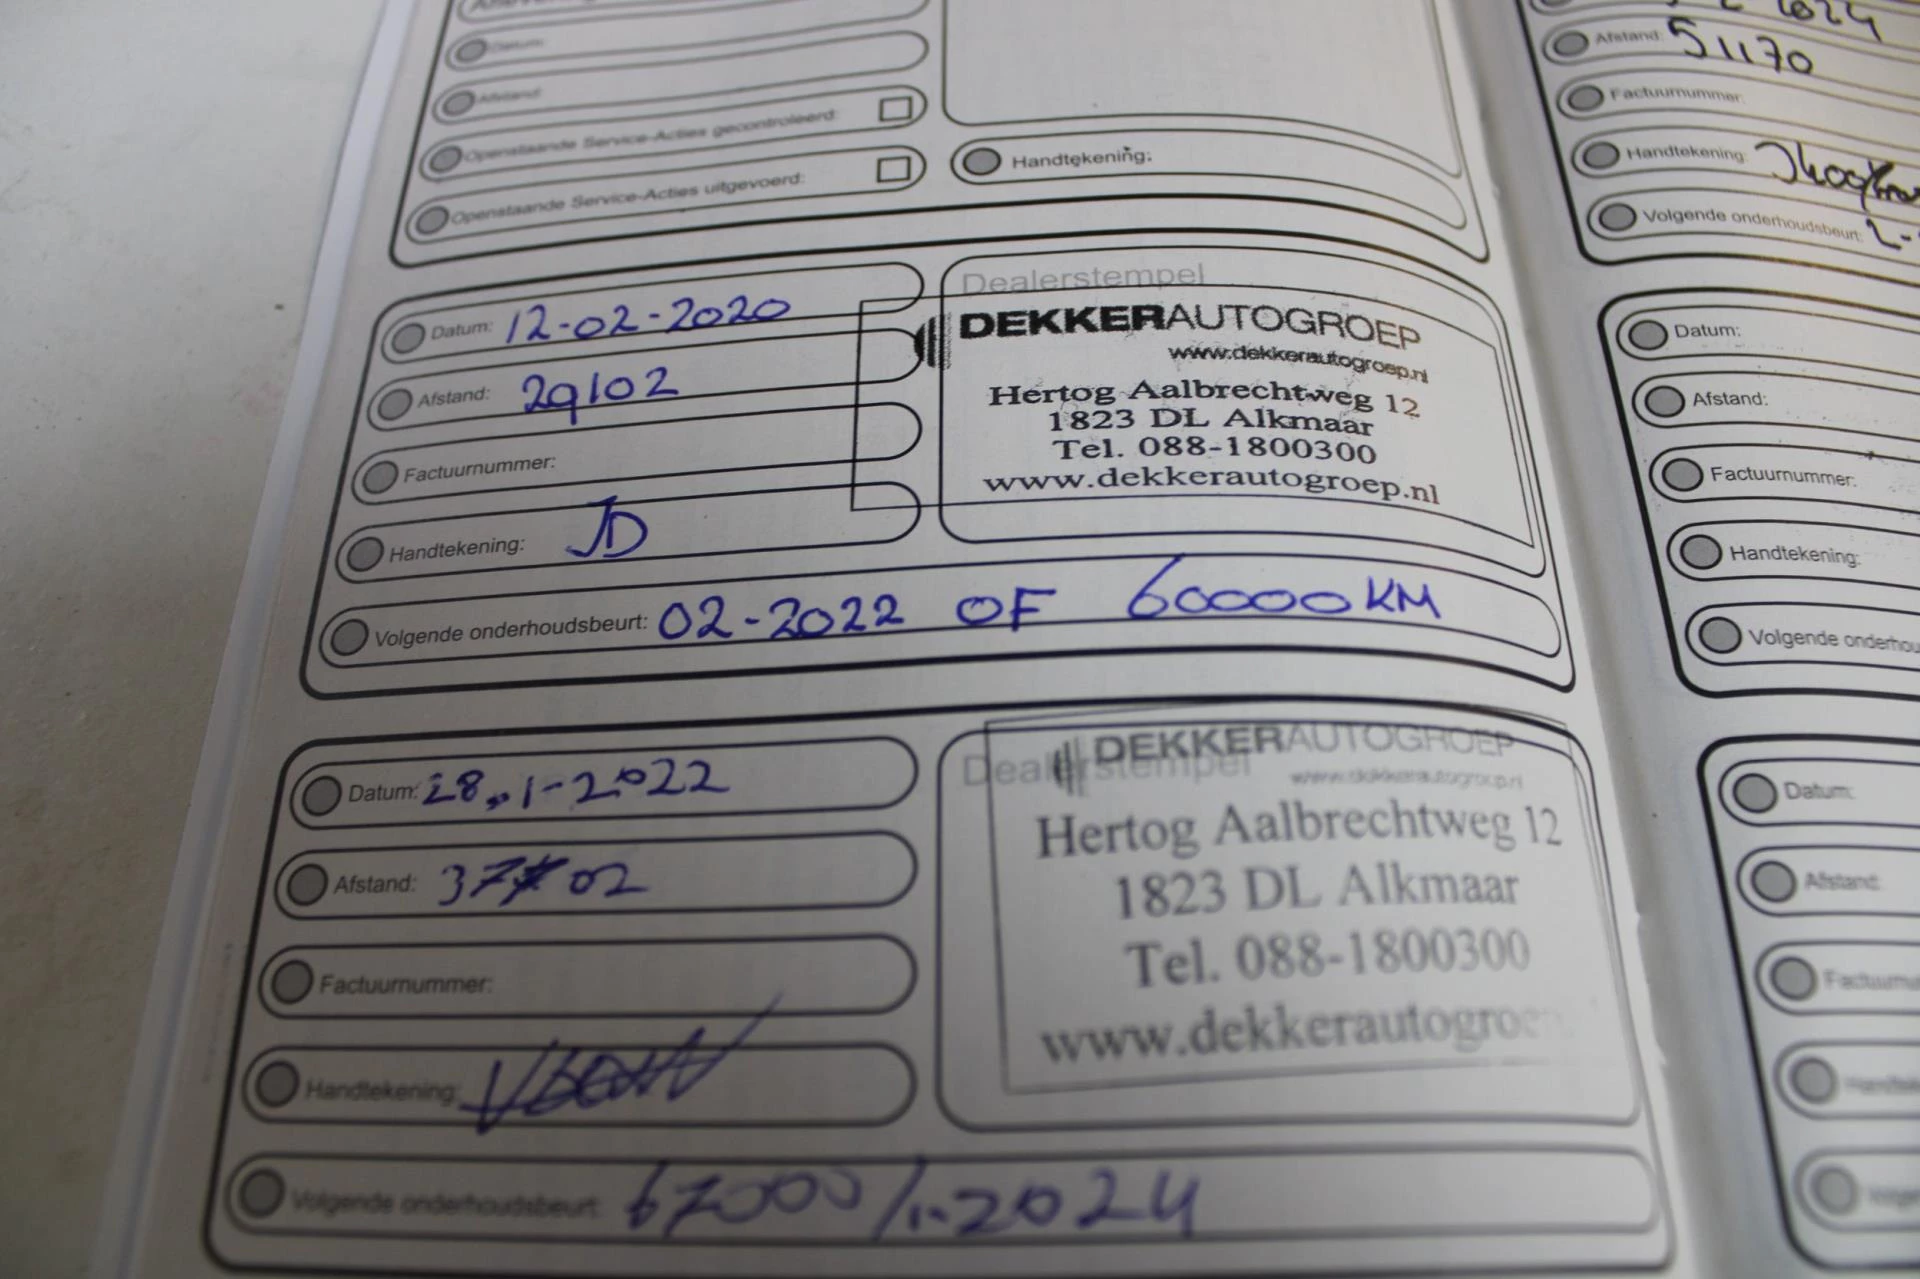 Datum:
Afstand:
Openstaande Service-Acties gecontroleerd:
Openstaande Service-Acties uitgevoerd:
Handtekening:
Datum: 12-02-2020
Afstand: 29102
Factuurnummer:
Handtekening: JD
Volgende onderhoudsbeurt: 02-2022 OF 60000KM
Dealerstempel
DEKKERAUTOGROEP
www.dekkerautogroep.nl
Hertog Aalbrechtweg 12
1823 DL Alkmaar
Tel. 088-1800300
www.dekkerautogroep.nl
Datum: 28-1-2022
Afstand: 37702
Factuurnummer:
Handtekening:
Volgende onderhoudsbeurt: 67000/1-2024
Dealerstempel
DEKKERAUTOGROEP
www.dekkerautogroep.nl
Hertog Aalbrechtweg 12
1823 DL Alkmaar
Tel. 088-1800300
www.dekkerautogroe
2024
Afstand: 51170
Factuurnummer:
Handtekening:
Volgende onderhoudsbeurt: 2-
Datum:
Afstand:
Factuurnummer:
Handtekening:
Volgende onderhou
Datum:
Afstand:
Factuurnu